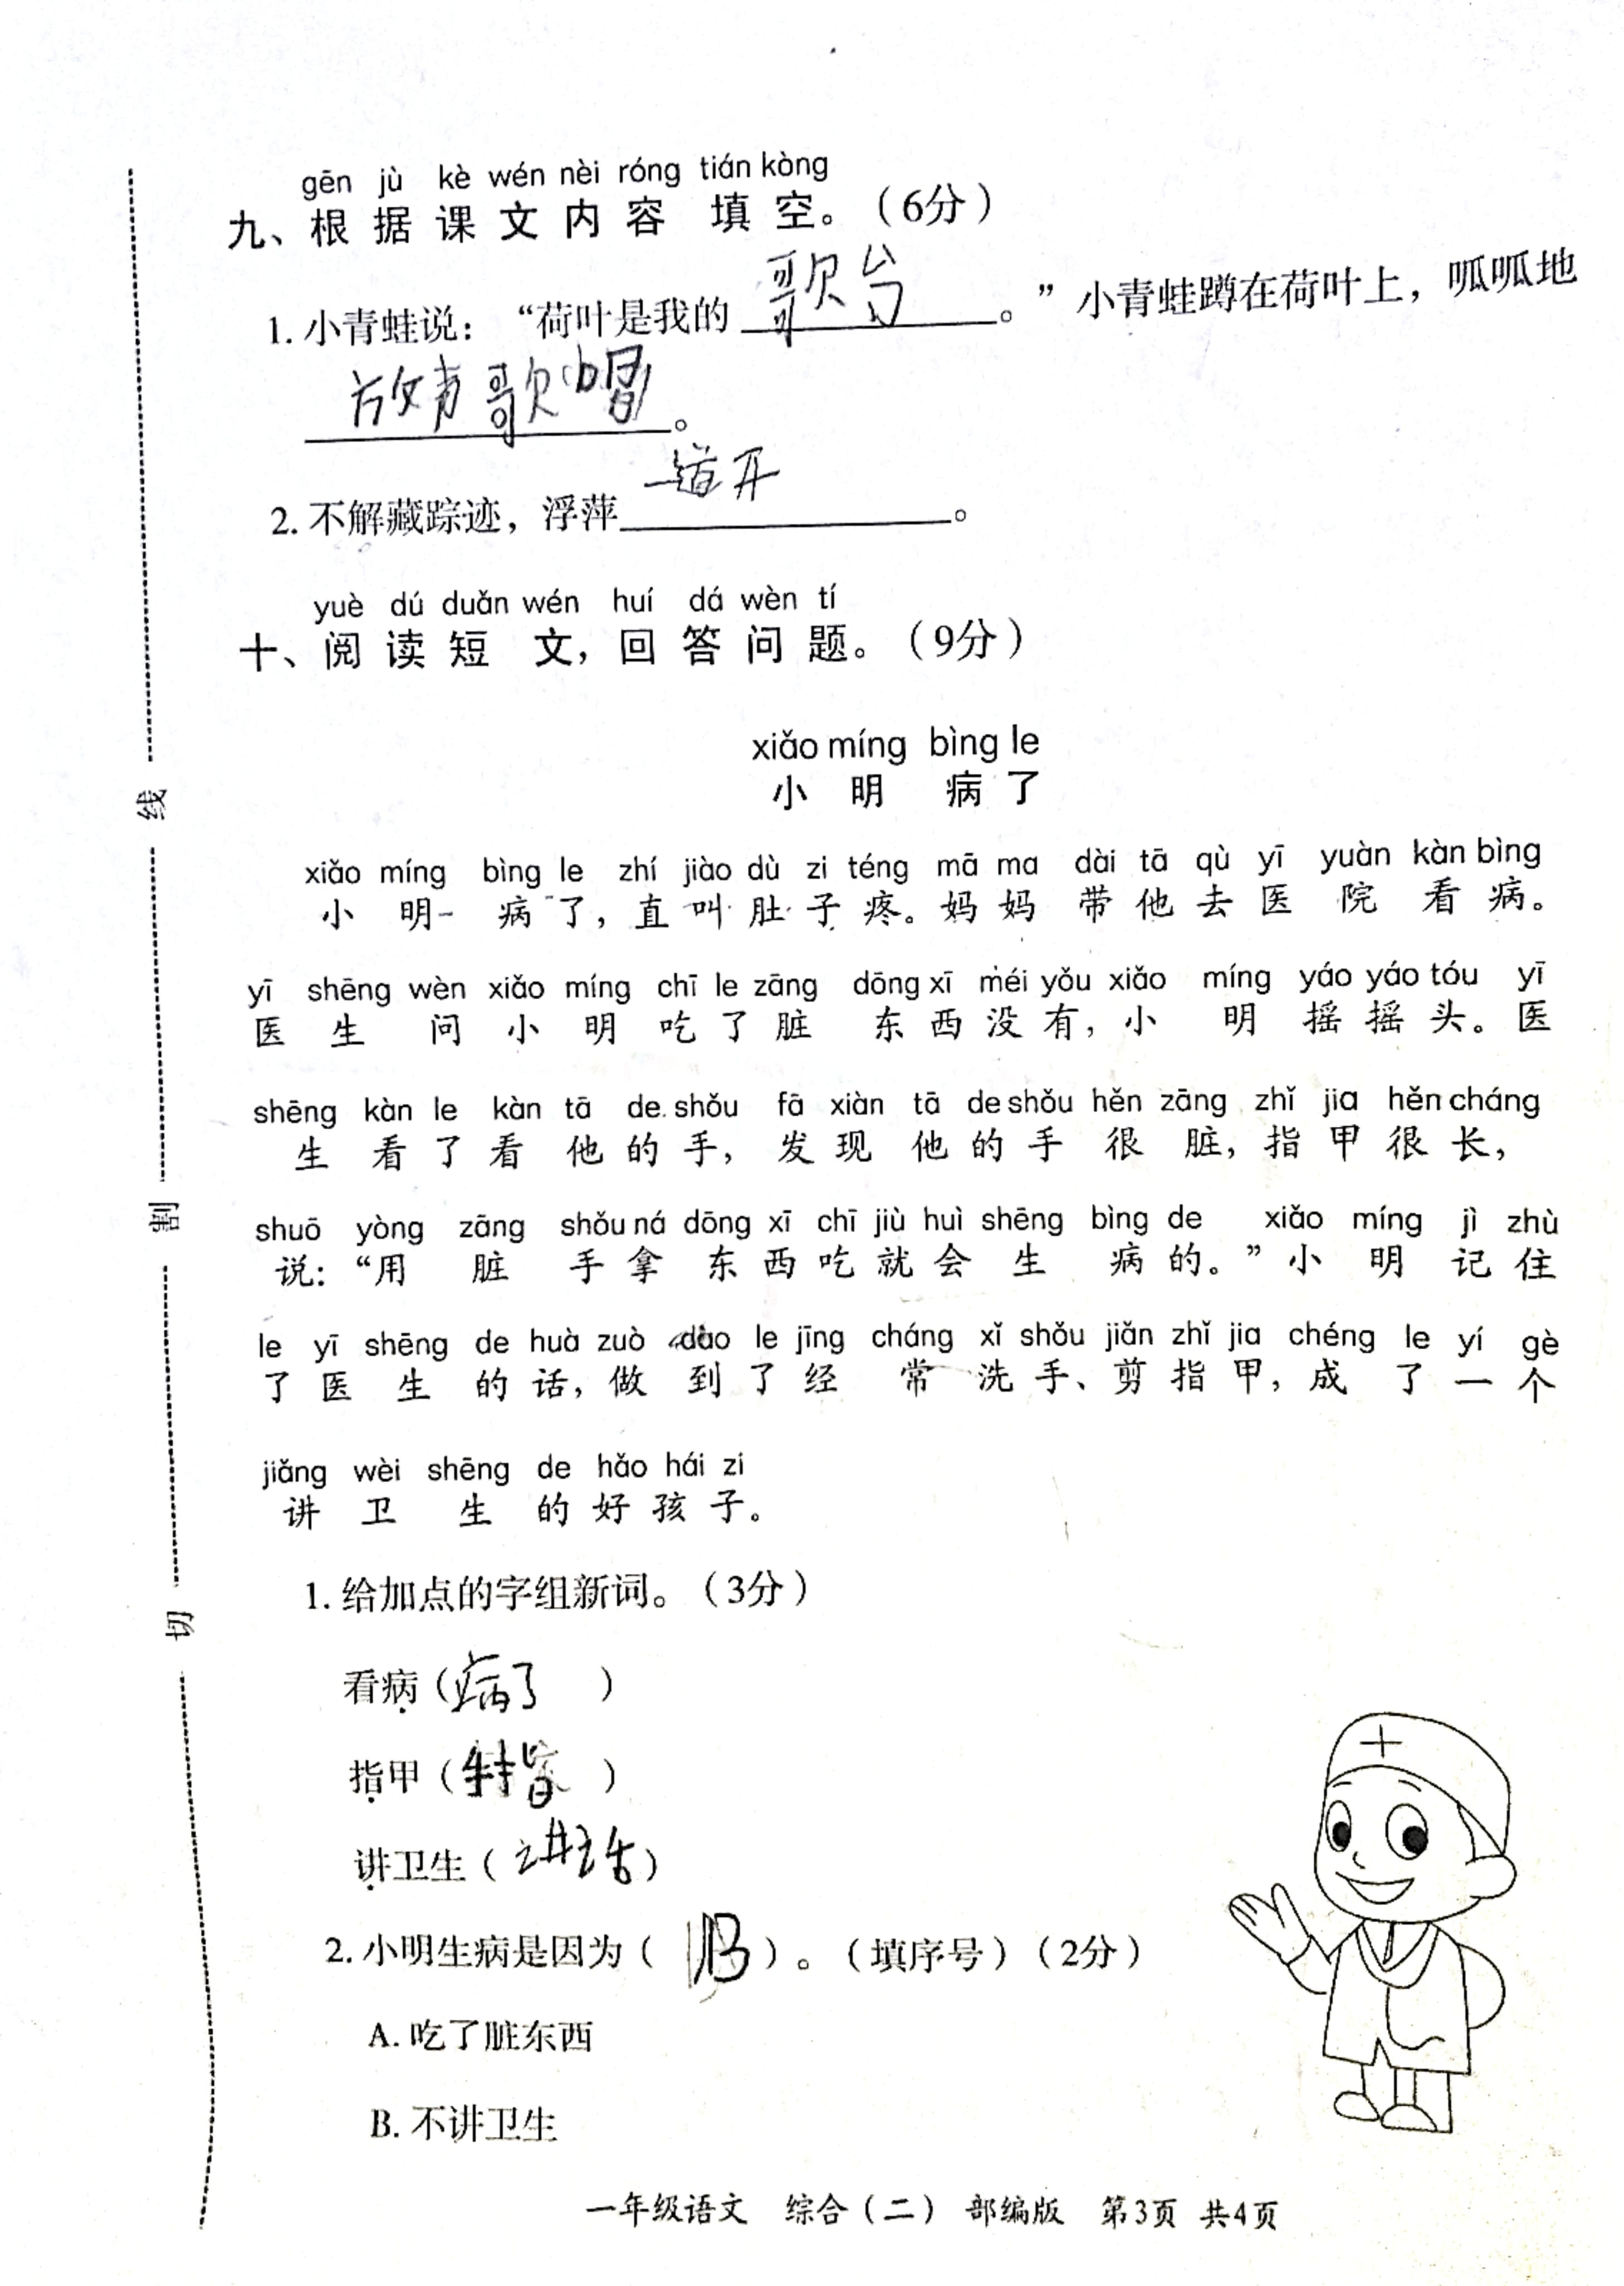 gēn jù kè wén nèi róng tián kòng
九、根据课文内容 填空。（6分）
1. 小青蛙说：“荷叶是我的 歌台 。”小青蛙蹲在荷叶上，呱呱地
放声歌唱 。
2. 不解藏踪迹，浮萍 一道开 。
yuè dú duǎn wén huí dá wèn tí
十、阅读短 文，回答问题。（9分）
xiǎo míng bìng le
小 明 病 了
xiǎo míng bìng le zhí jiào dù zi téng mā ma dài tā qù yī yuàn kàn bìng
小 明 病 了，直叫肚子疼。妈妈带他去医院看病。
yī shēng wèn xiǎo míng chī le zāng dōng xī méi yǒu xiǎo míng yáo yáo tóu yī
医生问小明吃了脏东西没有，小明摇摇头。医
shēng kàn le kàn tā de shǒu fā xiàn tā de shǒu hěn zāng zhǐ jia hěn cháng
生看了看他的手，发现他的手很脏，指甲很长，
shuō yòng zāng shǒu ná dōng xī chī jiù huì shēng bìng de xiǎo míng jì zhù
说：“用脏手拿东西吃就会生病的。”小明记住
le yī shēng de huà zuò dào le jīng cháng xǐ shǒu jiǎn zhǐ jia chéng le yí gè
了医生的话，做到了经常洗手、剪指甲，成了一个
jiǎng wèi shēng de hǎo hái zi
讲卫生的好孩子。
1. 给加点的字组新词。（3分）
看病（病了 ）
指甲（手指 ）
讲卫生（讲话）
2. 小明生病是因为（ B ）。（填序号）（2分）
A. 吃了脏东西
B. 不讲卫生
一年级语文 综合（二） 部编版 第3页 共4页
线
割
切